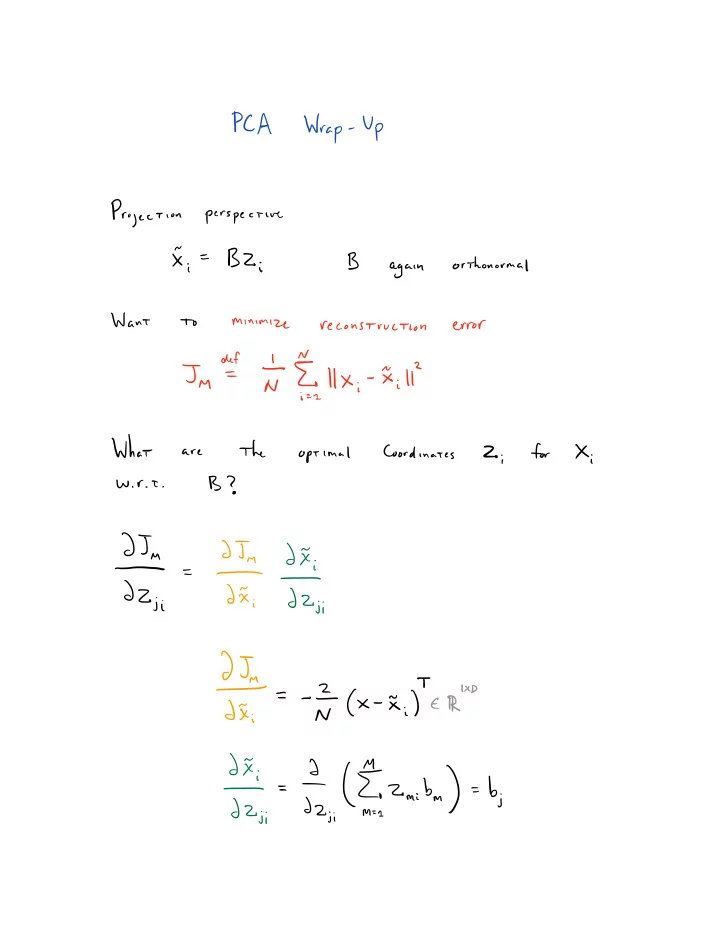 PCA Wrap-Up
Projection perspective
x̃_i = Bz_i B again orthonormal
Want to minimize reconstruction error
J_M def= 1/N ∑_{i=1}^{N} ||x_i - x̃_i||^2
What are the optimal coordinates z_i for x_i
w.r.t. B?
∂J_M/∂z_ji = ∂J_M/∂x̃_i ∂x̃_i/∂z_ji
∂J_M/∂x̃_i = -2/N (x - x̃_i)^T ∈ ℝ^{1×D}
∂x̃_i/∂z_ji = ∂/∂z_ji (∑_{m=1}^{M} z_mi b_m) = b_j